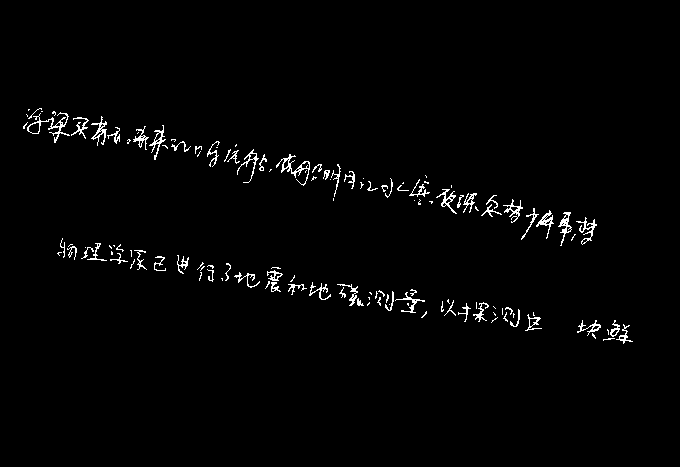 浮梁买茶去。去来江口守空船,绕船明月江水寒。夜深忽梦少年事,梦
物理学家已进行了地震和地磁测量,以探测这 块鲜